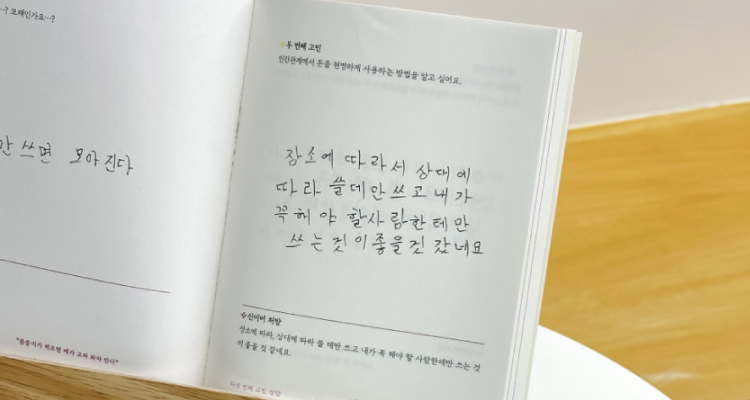 …? 모태인가요…?
만 쓰면 모아진다
"씀씀이가 헤프면 매가 고파 봐야 안다"
두 번째 고민
인간관계에서 돈을 현명하게 사용하는 방법을 알고 싶어요.
장소에 따라서 상대에
따라 쓸데만쓰고 내가
꼭해야 할사람한테만
쓰는것이좋을것 같네요
신이어 처방
장소에 따라, 상대에 따라 쓸 데만 쓰고 내가 꼭 해야 할 사람한테만 쓰는 것
이 좋을 것 같네요.
번째 고민 상담